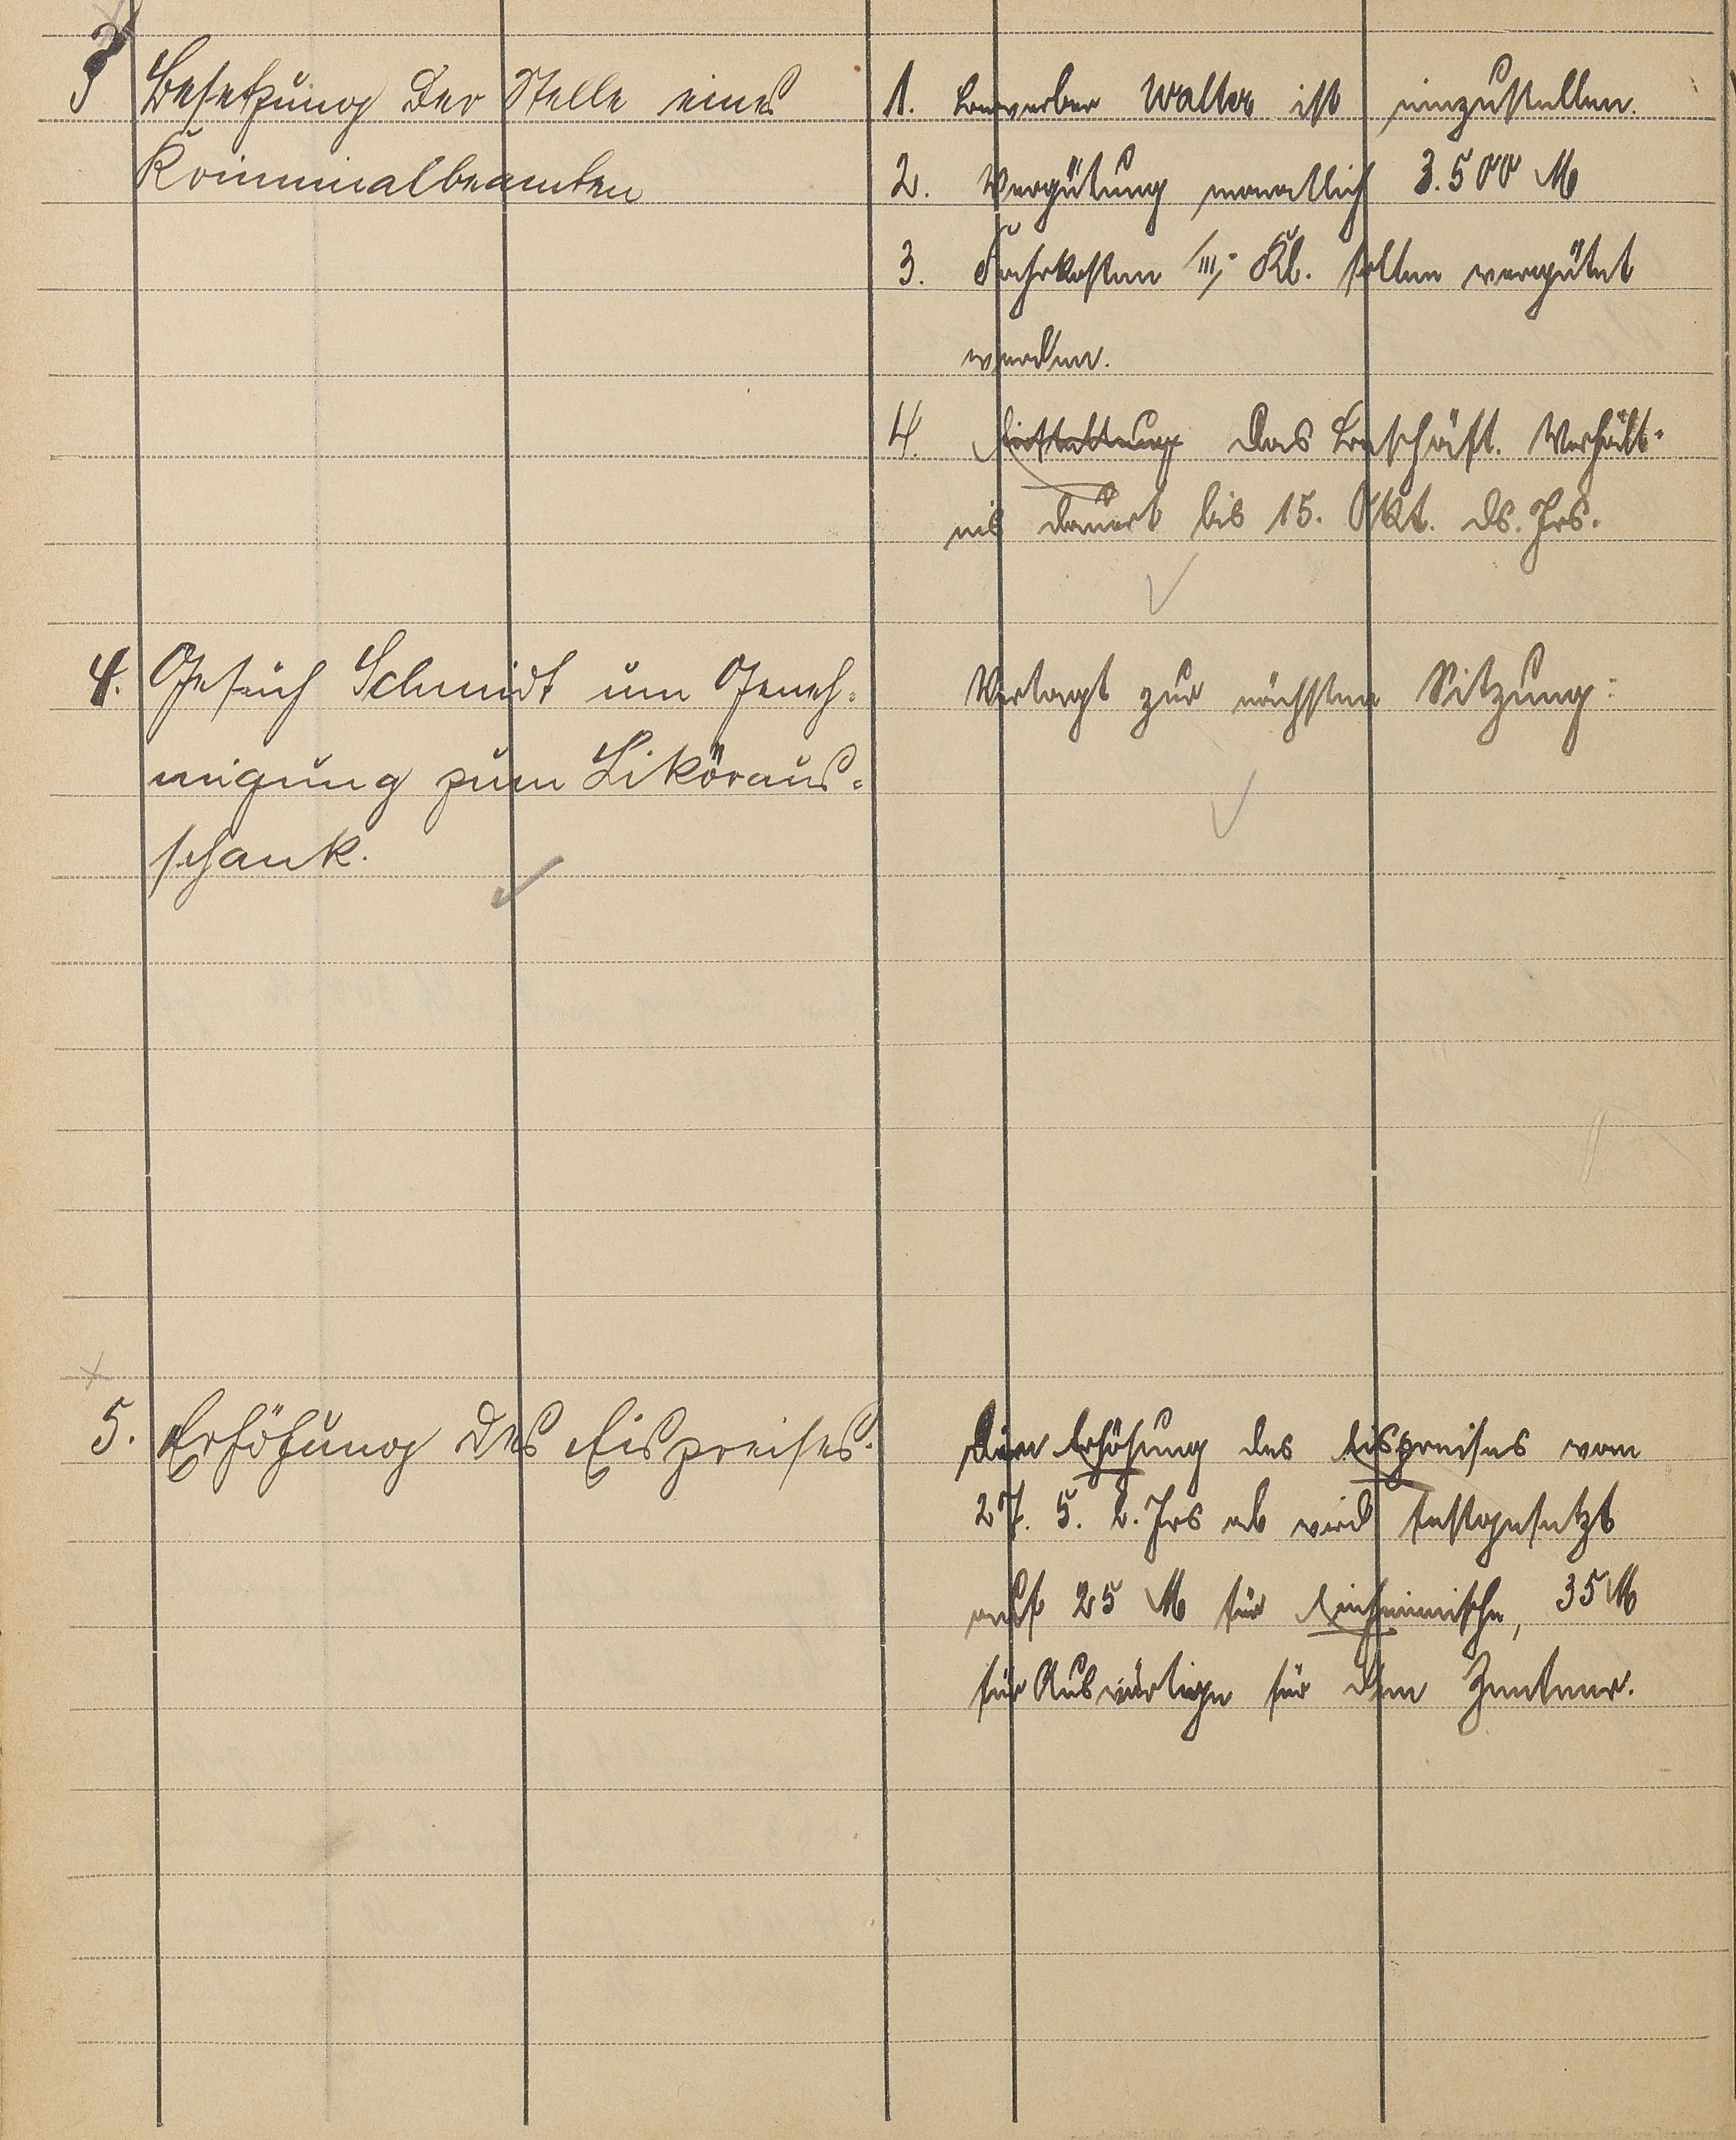 3 Besetzung der Stelle eines
Kriminalbeamten
1. Bewerber Walter ist einzustellen.
2. Vergütung monatlich 3.500 M
3. Fahrkosten III. Kl. sollen vergütet
werden.
4. das Beschäft. Verhält-
nis dauert bis 15. Okt. ds. Jrs.
4. Gesuch Schmidt um Geneh-
migung zum Liköraus-
schank.
Vertagt zur nächsten Sitzung:
5. Erhöhung des Eispreises.
Die Erhöhung des Eispreises vom
27. 5. Jrs ab wird festgesetzt
auf 25 M für Einheimische, 35 M
für Auswärtige für den Zentner.